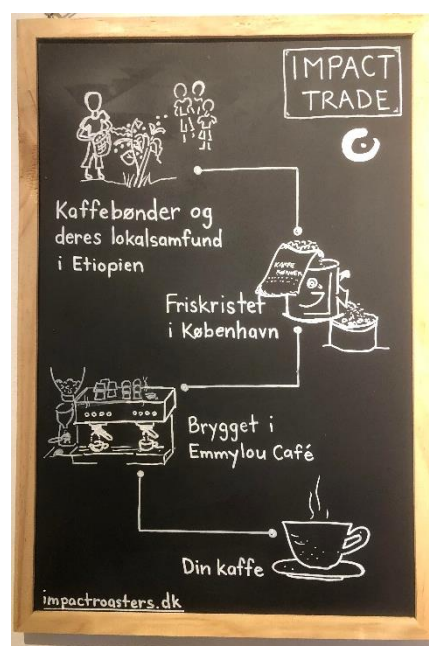 IMPACT
TRADE
Kaffebønder og
deres lokalsamfund
i Etiopien
KAFFE
BØNNER
Friskristet
i København
Brygget i
Emmylou Café
Din kaffe
impactroasters.dk